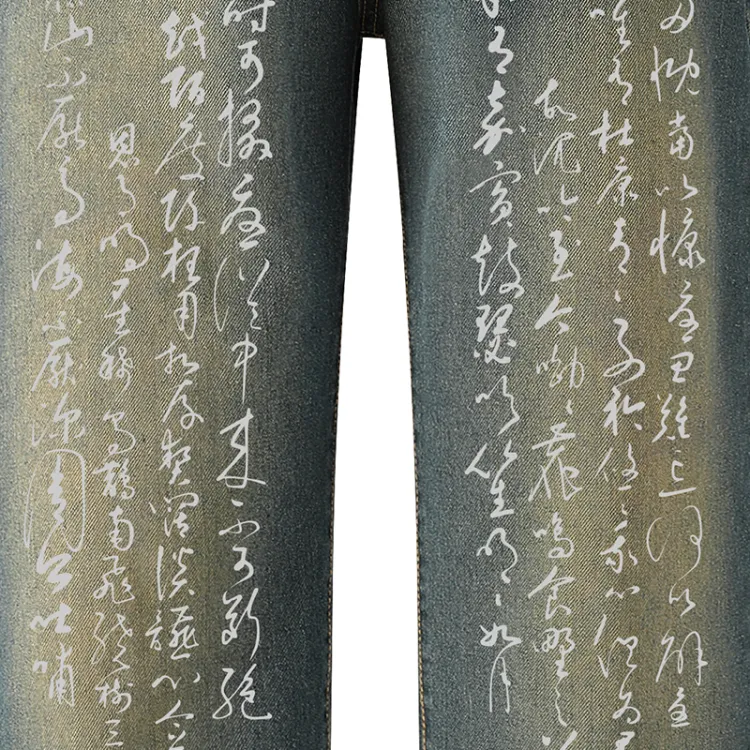 多慨當以慷憂思難忘何以解憂
唯有杜康青青子衿悠悠我心但為君
故沉吟至今呦呦鹿鳴食野之
我有嘉賓鼓瑟吹笙明明如月
時可掇憂從中來不可斷絕
越陌度阡枉用相存契闊談讌心念
恩月明星稀烏鵲南飛繞樹三
山不厭高海不厭深周公吐哺